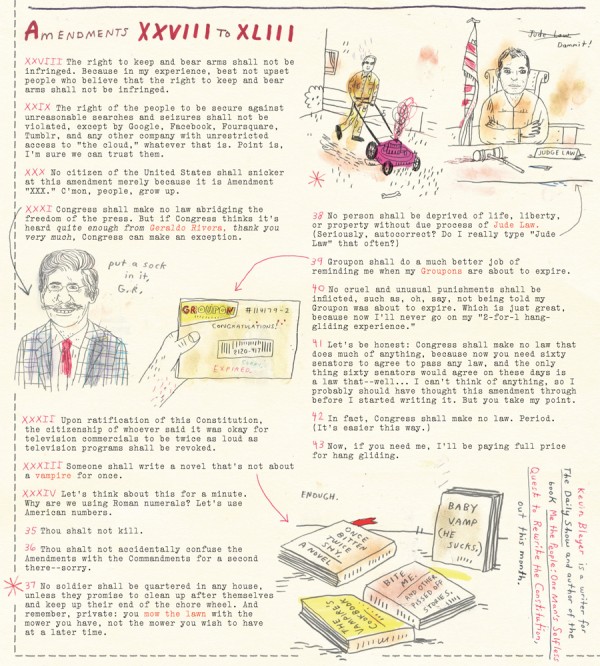 AMENDMENTS XXVIII TO XLIII
XXVIII The right to keep and bear arms shall not be
infringed. Because in my experience, best not upset
people who believe that the right to keep and bear
arms shall not be infringed.
XXIX The right of the people to be secure against
unreasonable searches and seizures shall not be
violated, except by Google, Facebook, Foursquare,
Tumblr, and any other company with unrestricted
access to "the cloud," whatever that is. Point is,
I'm sure we can trust them.
XXX No citizen of the United States shall snicker
at this amendment merely because it is Amendment
"XXX." C'mon, people, grow up.
XXXI Congress shall make no law abridging the
freedom of the press. But if Congress thinks it's
heard quite enough from Geraldo Rivera, thank you
very much, Congress can make an exception.
put a sock
in it,
G.R.
GROUPON
#114179-2
CONGRATULATIONS!
EXPIRED
XXXII Upon ratification of this Constitution,
the citizenship of whoever said it was okay for
television commercials to be twice as loud as
television programs shall be revoked.
XXXIII Someone shall write a novel that's not about
a vampire for once.
XXXIV Let's think about this for a minute.
Why are we using Roman numerals? Let's use
American numbers.
35 Thou shalt not kill.
36 Thou shalt not accidentally confuse the
Amendments with the Commandments for a second
there--sorry.
37 No soldier shall be quartered in any house,
unless they promise to clean up after themselves
and keep up their end of the chore wheel. And
remember, private: you mow the lawn with the
mower you have, not the mower you wish to have
at a later time.
Jude Law
Dammit!
JUDGE LAW
38 No person shall be deprived of life, liberty,
or property without due process of Jude Law.
(Seriously, autocorrect? Do I really type "Jude
Law" that often?)
39 Groupon shall do a much better job of
reminding me when my Groupons are about to expire.
40 No cruel and unusual punishments shall be
inflicted, such as, oh, say, not being told my
Groupon was about to expire. Which is just great,
because now I'll never go on my "2-for-1 hang-
gliding experience."
41 Let's be honest: Congress shall make no law that
does much of anything, because now you need sixty
senators to agree to pass any law, and the only
thing sixty senators would agree on these days is
a law that--well... I can't think of anything, so I
probably should have thought this amendment through
before I started writing it. But you take my point.
42 In fact, Congress shall make no law. Period.
(It's easier this way.)
43 Now, if you need me, I'll be paying full price
for hang gliding.
ENOUGH.
ONCE
BITTEN
TWICE
SHY.
A NOVEL
BABY
VAMP
(HE
SUCKS.)
BITE
ME.
AND OTHER
PISSED OFF
STORIES.
THE
VAMPIRE'S
COOKBOOK
Kevin Bleyer is a writer for
The Daily Show and author of the
book Me the People: One Man's Selfless
Quest to Rewrite the Constitution,
out this month.